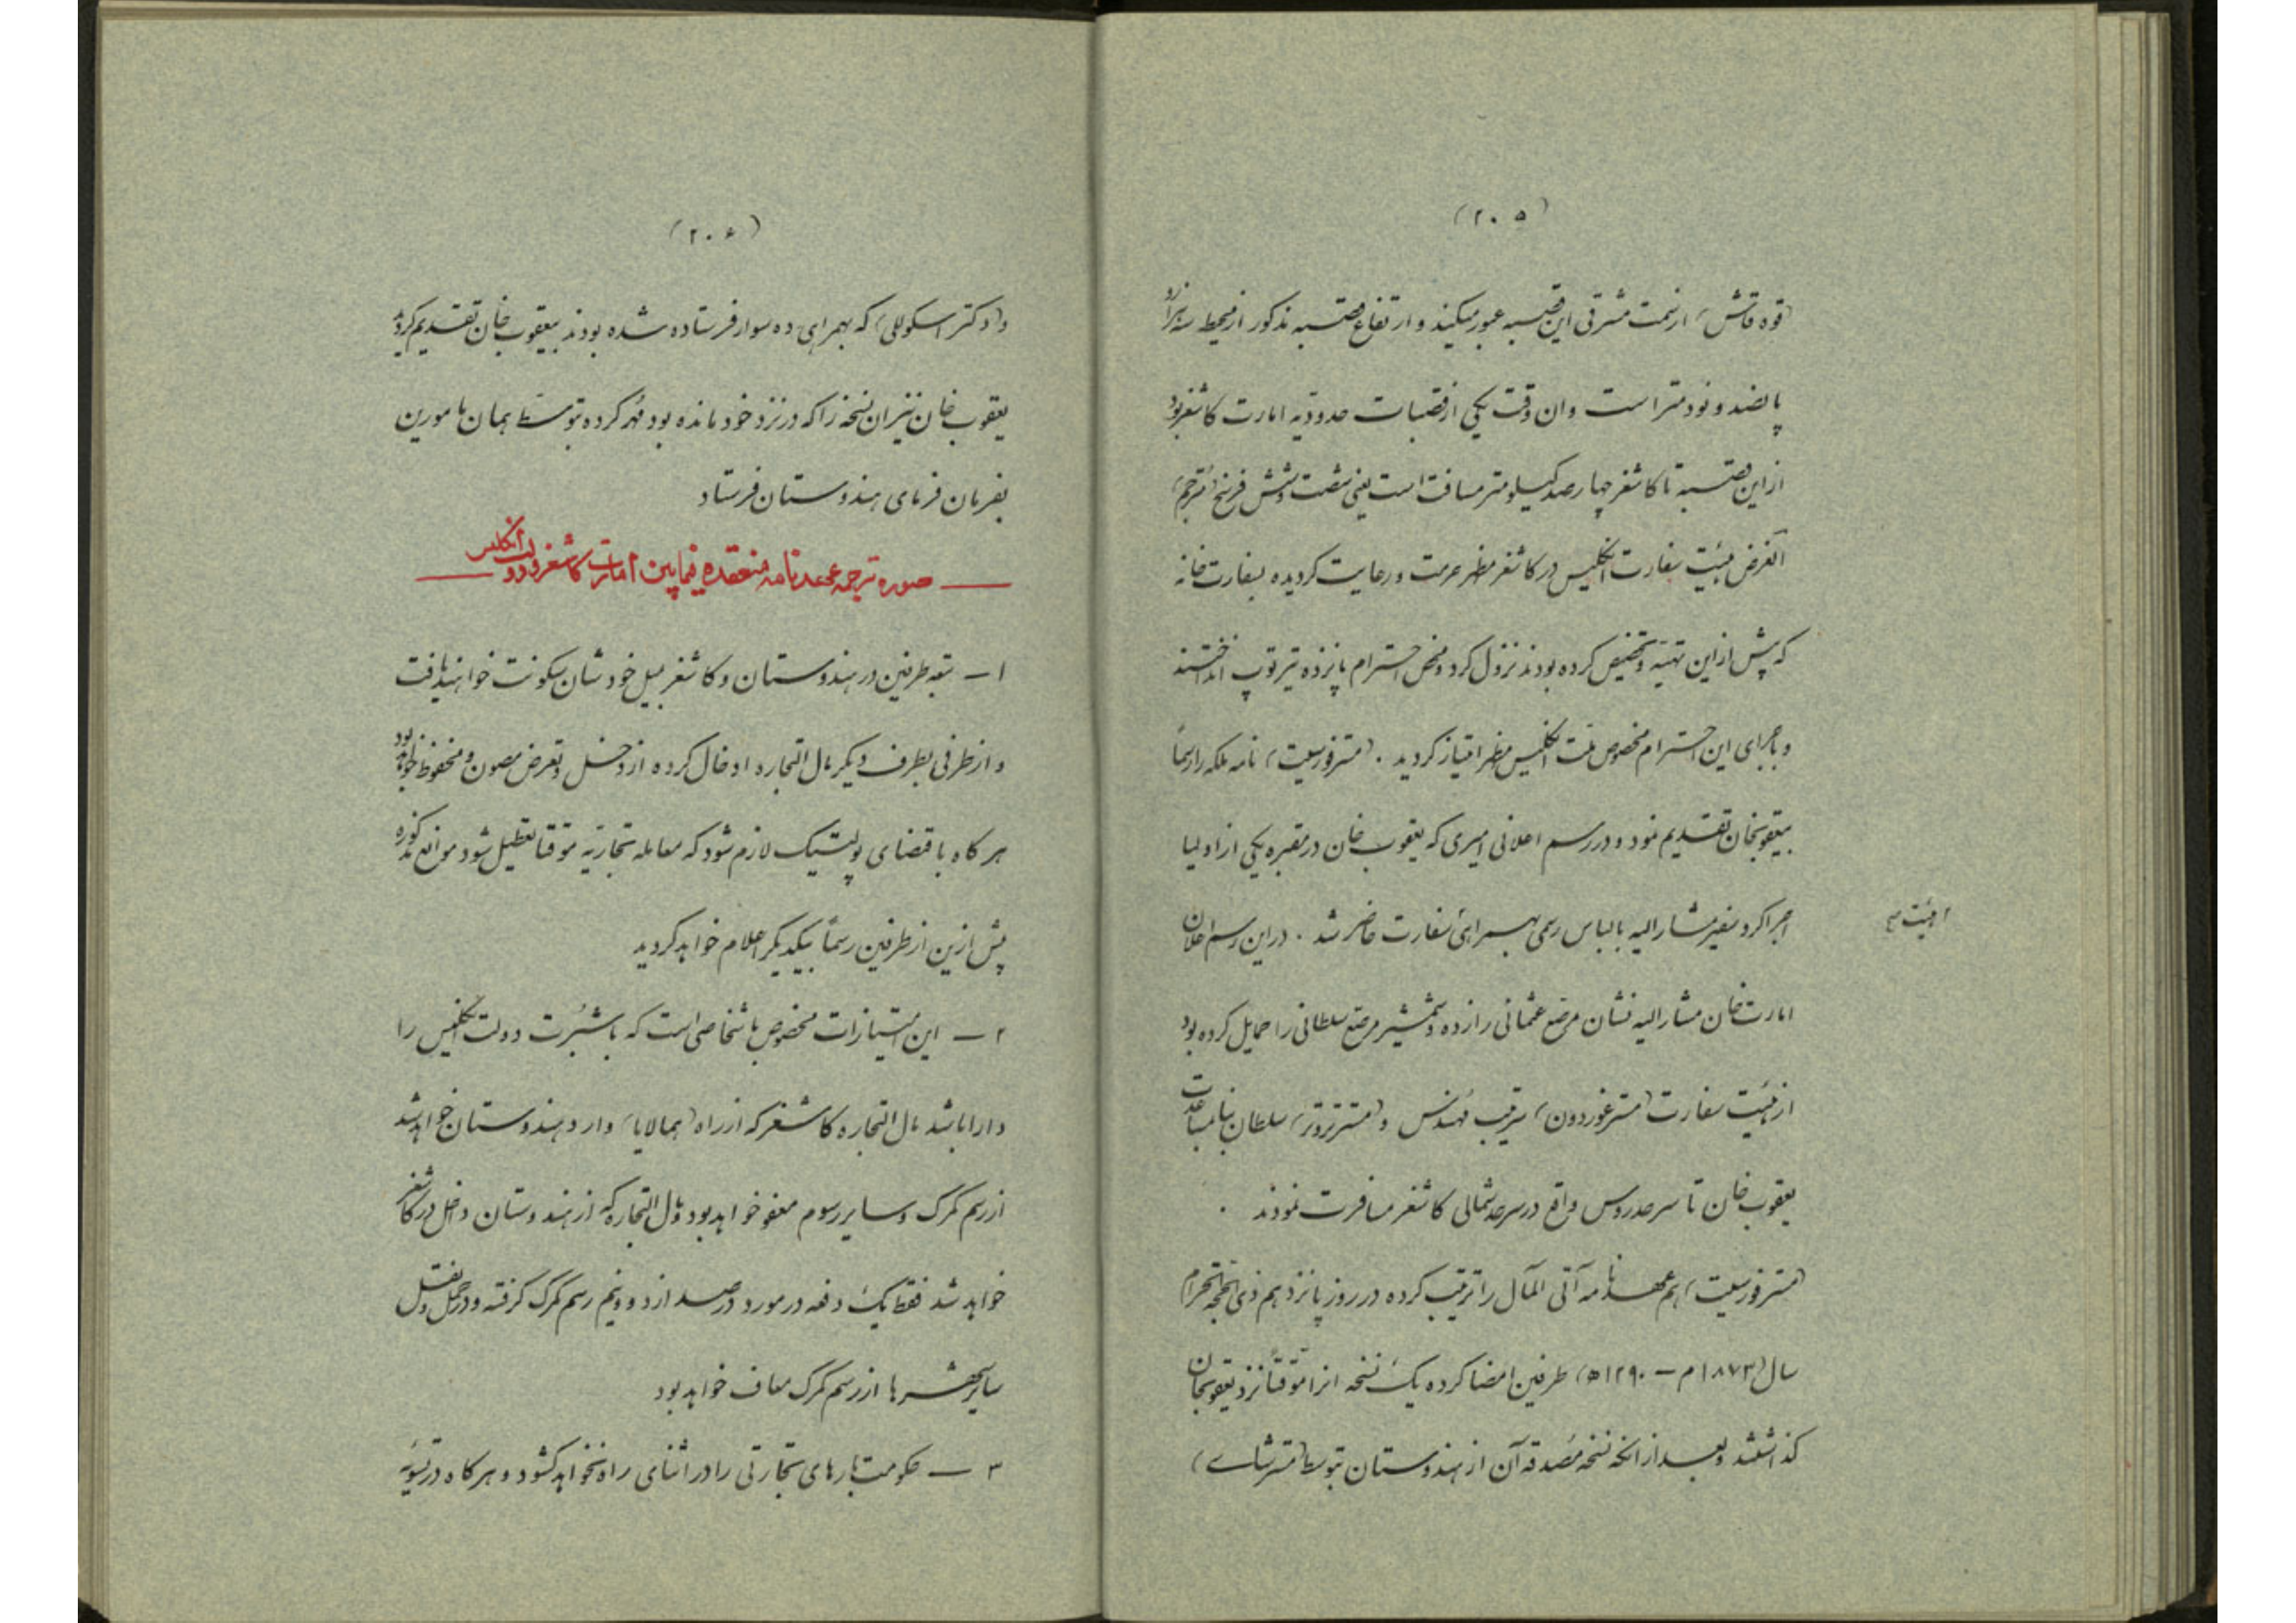 (۲۰۵)
(قوه قاش) از سمت مشرقی این قصبه عبور میکند و ارتفاع قصبه مذکور از محیط سه هزار و
پانصد و نود متر است و ان وقت یکی از قصبات حدودیه امارت کاشغر بود
از این قصبه تا کاشغر چهار صد کیلومتر مسافت است یعنی شصت و شش فرسخ (مترجم)
الغرض هیئت سفارت انگلیس در کاشغر مظهر حرمت و رعایت کردیده بسفارت خانه
که پیش از این تهیّه و تخصیص کرده بودند نزول کرد و محض احترام پانزده تیر توپ انداختند
و باجرای این احترام مخصوص ملت انگلیس مظهر امتیاز کردید . (مستر فورسیت) نامه ملکه را رسماً
بیعقوبخان تقدیم نمود و در رسم اعلانی امیری که یعقوب خان در مقبره یکی از اولیا
اجرا کرد سفیر مشار الیه بالباس رسمی بهمراهی سفارت حاضر شد . در این رسم اعلان
امارت خان مشار الیه نشان مرصّع عثمانی را زده و شمشیر مرصّع سلطانی را حمایل کرده بود
از هیئت سفارت (مستر غوردون) سرتیب مهندس و (مستر تروتر) سلطان بنا بمساعدت
یعقوب خان تا سرحد روس واقع در سرحد شمالی کاشغر مسافرت نمودند .
(مستر فورسیت) هم عهد نامه آتی المآل را ترتیب کرده در روز پانزدهم ذی الحجه الحرام
سال (۱۸۷۳ م — ۱۲۹۰ ه) طرفین امضا کرده یک نسخه انرا موقتاً نزد یعقوبخان
کذاشتند و بعد از انکه نسخه مُصدقه آن از هندوستان بتوسط (مستر شاے)
(۲۰۶)
و (دکتر اسکوللی) که بهمراهی ده سوار فرستاده شده بودند بیعقوب خان تقدیم کردید
یعقوب خان نیز ان نسخه را که در نزد خود مانده بود مُهر کرده بتوسّط همان مامورین
بفرمان فرمای هندوستان فرستاد
— صوره ترجمه عهدنامه منعقده فیمابین امارت کاشغر و دولت انگلیس —
۱ — تبعه طرفین در هندوستان و کاشغر بمیل خودشان سکونت خواهند یافت
و از طرفی بطرف دیکر مال التجاره ادخال کرده از دخل و تعرض مصون و محفوظ خواهد بود
هر کاه باقتضای پولتیک لازم شود که معامله تجارتیه موقتا تعطیل شود موانع مذکوره
پیش ازین از طرفین رسماً بیکدیکر اعلام خواهد کردید
۲ — این امتیازات مخصوص باشخاصی است که باشبُرت دولت انگلیس را
دارا باشد مال التجاره کاشغر که از راه (همالایا) وارد هندوستان خواهد شد
از رسم کمرک و سایر رسوم معفو خواهد بود و مال التجاره که از هندوستان داخل در کاشغر
خواهد شد فقط یک دفعه در مورد در صد از دو و نیم رسم کمرک کرفته و در حمل و نقل
سایر شهرها از رسم کمرک معاف خواهد بود
۳ — حکومت بارهای تجارتی را در اثنای راه نخواهد کشود و هر کاه در تسویه